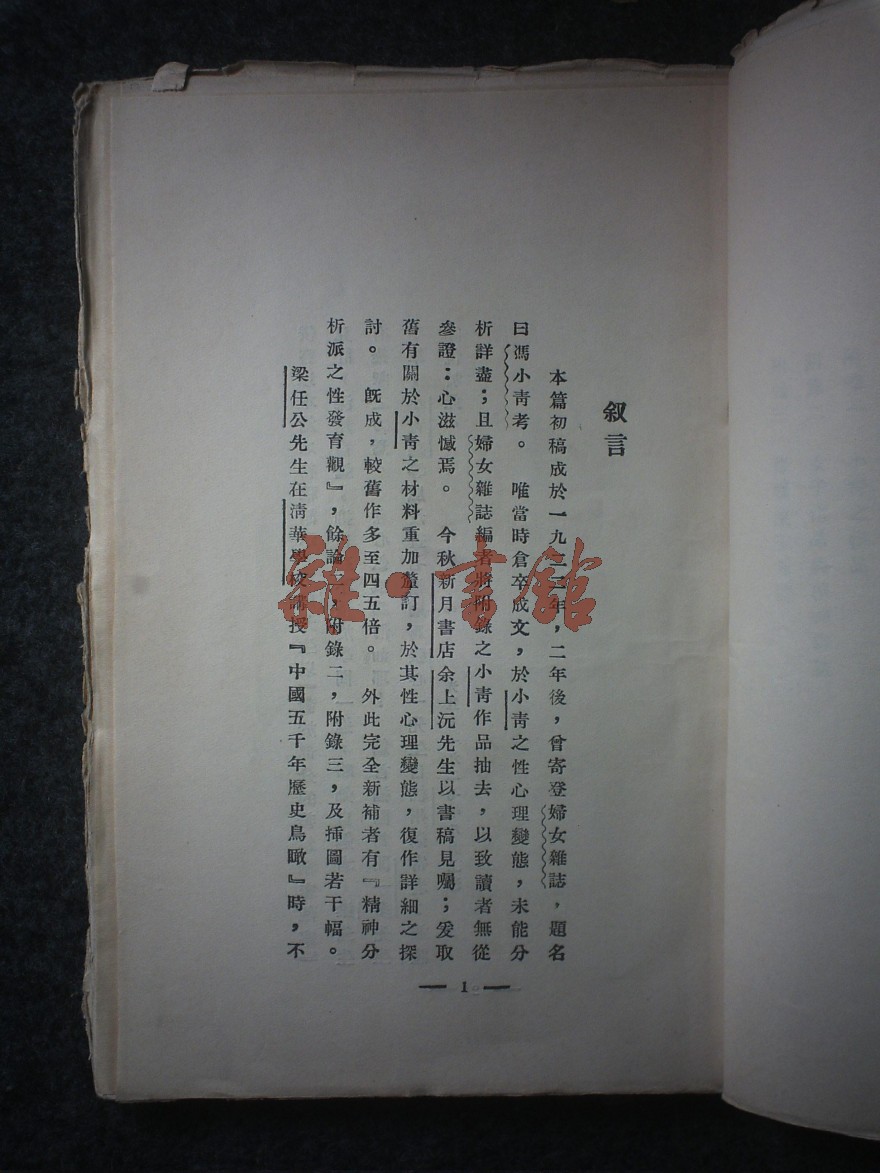 叙言
本篇初稿成於一九二二年，二年後，曾寄登婦女雜誌，題名
曰馮小靑考。　唯當時倉卒成文，於小靑之性心理變態，未能分
析詳盡；且婦女雜誌編者將附錄之小靑作品抽去，以致讀者無從
參證：心滋憾焉。　今秋新月書店余上沅先生以書稿見囑；爰取
舊有關於小靑之材料重加釐訂，於其性心理變態，復作詳細之探
討。　旣成，較舊作多至四五倍。　外此完全新補者有『精神分
析派之性發育觀』，餘論二，附錄二，附錄三，及揷圖若干幅。
梁任公先生在淸華學校講授『中國五千年歷史鳥瞰』時，不
1
雜·書館